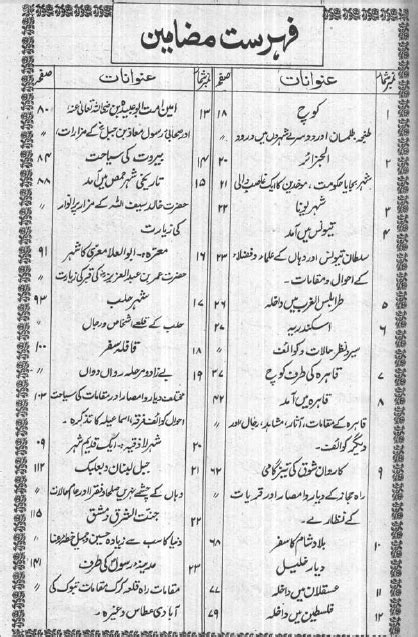 فہرست مضامین
نمبرشمار عنوانات صفحہ
۱ کوچ ۱۸
طنجہ طلمسان اور دوسرے شہروں میں ورود 〃
۲ الجزائر ۲۰
شہر بجایا حکومت، موحدین کا ایک غاصب والی ۲۱
۳ شہر بونا ۲۲
۴ تیونس میں آمد
سلطان تیونس اور وہاں کے علماء و فضلاء ۲۳
کے احوال و مقامات۔
۵ طرابلس الغرب میں داخلہ ۲۶
۶ اسکندریہ ۲۷
سیر و نظر حالات و کوائف
۷ قاہرہ کی طرف کوچ ۳۷
۸ قاہرہ میں آمد ۴۲
قاہرہ کے مقامات، آثار، مشاہد، رجال اور 〃
دیگر کوائف۔
۹ کاروان شوق کی تیز گامی ۶۲
راہ حجاز کے دیار و امصار اور قریات 〃
کے نظارے۔
۱۰ بلاد شام کا سفر ۶۸
دیار خلیل
۱۱ عسقلان میں داخلہ ۷۷
۱۲ فلسطین میں داخلہ ۷۹
نمبرشمار عنوانات صفحہ
۱۳ امین امت ابو عبیدہ بن رضی اللہ تعالیٰ عنہ ۸۰
اور صحابی رسول معاذ بن جبل کے مزارات 〃
۱۴ بیروت کی سیاحت ۸۴
۱۵ تاریخی شہر حمص میں آمد ۸۸
حضرت خالد سیف اللہ کے مزار پر انوار 〃
کی زیارت
۱۶ معرہ۔ ابو العلا معری کا شہر ۹۱
حضرت عمر بن عبد العزیز کی قبر کی زیارت 〃
۱۷ شہر حلب ۹۳
حلب کے قلعے اشخاص و رجال 〃
۱۸ قافلہ سفر ۱۰۰
۱۹ بے زاد و مرحلہ رواں دواں
مختلف دیار و امصار اور مقامات کی سیاحت ۱۰۳
احوال کوائف فرقہ اسماعیلہ کا تذکرہ۔
۲۰ شہر لاذقیہ، ایک قدیم شہر ۰۹
۲۱ جبل لبنان و بعلبک ۱۱۲
وہاں کے چشمے نہریں صلحاء فقرا اور عام حالات 〃
۲۲ جنت المشرق دمشق ۱۱۵
دنیا کا سب سے زیادہ حسین و جمیل خطہ 〃
۲۳ مدینہ رسول کی طرف ۱۴۱
مقامات راہ قلعہ کرک مقامات تبوک کی 〃
آبادی عطاس وغیرہ۔